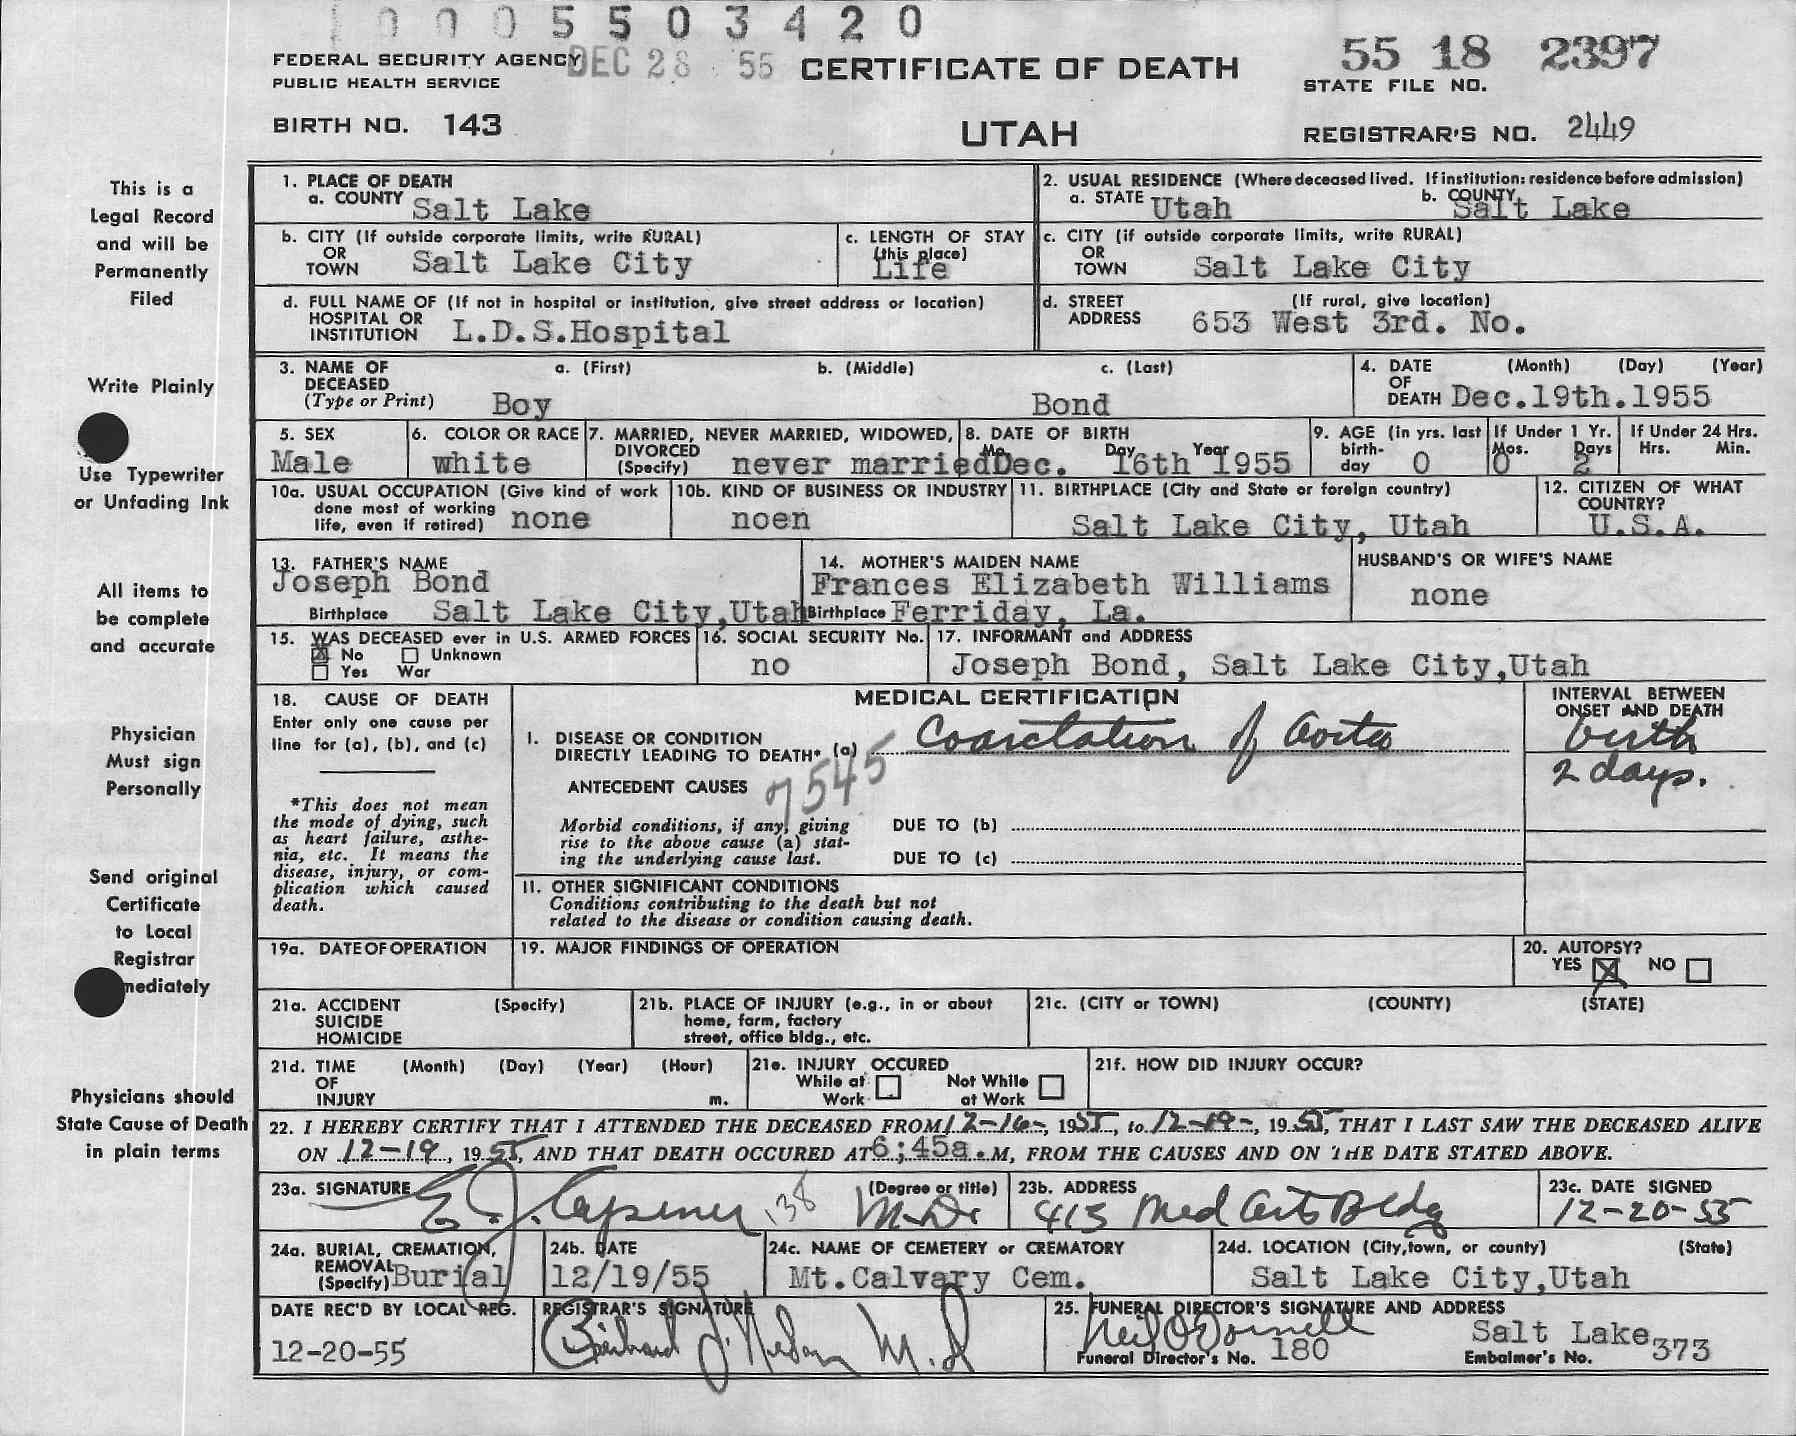 0005503420
FEDERAL SECURITY AGENCY DEC 28 55 CERTIFICATE OF DEATH 55 18 2397
PUBLIC HEALTH SERVICE STATE FILE NO.
BIRTH NO. 143 UTAH REGISTRAR'S NO. 2449
This is a
Legal Record
and will be
Permanently
Filed
Write Plainly
Use Typewriter
or Unfading Ink
All items to
be complete
and accurate
Physician
Must sign
Personally
Send original
Certificate
to Local
Registrar
mediately
Physicians should
State Cause of Death
in plain terms
1. PLACE OF DEATH
a. COUNTY Salt Lake
2. USUAL RESIDENCE (Where deceased lived. If institution: residence before admission)
a. STATE Utah b. COUNTY Salt Lake
b. CITY (If outside corporate limits, write RURAL)
OR
TOWN Salt Lake City
c. LENGTH OF STAY
(this place)
Life
c. CITY (if outside corporate limits, write RURAL)
OR
TOWN Salt Lake City
d. FULL NAME OF (If not in hospital or institution, give street address or location)
HOSPITAL OR
INSTITUTION L.D.S.Hospital
d. STREET (If rural, give location)
ADDRESS 653 West 3rd. No.
3. NAME OF a. (First) b. (Middle) c. (Last)
DECEASED
(Type or Print) Boy Bond
4. DATE (Month) (Day) (Year)
OF
DEATH Dec.19th.1955
5. SEX
Male
6. COLOR OR RACE
white
7. MARRIED, NEVER MARRIED, WIDOWED,
DIVORCED
(Specify) never married
8. DATE OF BIRTH
Mo. Day Year
Dec. 16th 1955
9. AGE (in yrs. last
birth-
day 0
If Under 1 Yr.
Mos. Days
0 2
If Under 24 Hrs.
Hrs. Min.
10a. USUAL OCCUPATION (Give kind of work
done most of working
life, even if retired) none
10b. KIND OF BUSINESS OR INDUSTRY
noen
11. BIRTHPLACE (City and State or foreign country)
Salt Lake City, Utah
12. CITIZEN OF WHAT
COUNTRY?
U.S.A.
13. FATHER'S NAME
Joseph Bond
Birthplace Salt Lake City,Utah
14. MOTHER'S MAIDEN NAME
Frances Elizabeth Williams
Birthplace Ferriday, La.
HUSBAND'S OR WIFE'S NAME
none
15. WAS DECEASED ever in U.S. ARMED FORCES
No Unknown
Yes War
16. SOCIAL SECURITY No.
no
17. INFORMANT and ADDRESS
Joseph Bond, Salt Lake City,Utah
18. CAUSE OF DEATH
Enter only one cause per
line for (a), (b), and (c)
*This does not mean
the mode of dying, such
as heart failure, asthe-
nia, etc. It means the
disease, injury, or com-
plication which caused
death.
MEDICAL CERTIFICATION
I. DISEASE OR CONDITION
DIRECTLY LEADING TO DEATH* (a) Coarctation of Aorta
ANTECEDENT CAUSES 7545
Morbid conditions, if any, giving
rise to the above cause (a) stat-
ing the underlying cause last.
DUE TO (b)
DUE TO (c)
INTERVAL BETWEEN
ONSET AND DEATH
birth
2 days.
II. OTHER SIGNIFICANT CONDITIONS
Conditions contributing to the death but not
related to the disease or condition causing death.
19a. DATE OF OPERATION
19. MAJOR FINDINGS OF OPERATION
20. AUTOPSY?
YES NO
21a. ACCIDENT (Specify)
SUICIDE
HOMICIDE
21b. PLACE OF INJURY (e.g., in or about
home, farm, factory
street, office bldg., etc.
21c. (CITY or TOWN) (COUNTY) (STATE)
21d. TIME (Month) (Day) (Year) (Hour)
OF
INJURY m.
21e. INJURY OCCURED
While at Not While
Work at Work
21f. HOW DID INJURY OCCUR?
22. I HEREBY CERTIFY THAT I ATTENDED THE DECEASED FROM 12-16-, 1955, to 12-19-, 1955, THAT I LAST SAW THE DECEASED ALIVE
ON 12-19, 1955, AND THAT DEATH OCCURED AT 6;45a.M, FROM THE CAUSES AND ON THE DATE STATED ABOVE.
23a. SIGNATURE (Degree or title)
E. J. 138 M.D.
23b. ADDRESS
413 Med Arts Bldg
23c. DATE SIGNED
12-20-55
24a. BURIAL, CREMATION,
REMOVAL
(Specify) Burial
24b. DATE
12/19/55
24c. NAME OF CEMETERY or CREMATORY
Mt.Calvary Cem.
24d. LOCATION (City,town, or county) (State)
Salt Lake City,Utah
DATE REC'D BY LOCAL REG.
12-20-55
REGISTRAR'S SIGNATURE
M.D
25. FUNERAL DIRECTOR'S SIGNATURE AND ADDRESS
Neil O'Donnell Salt Lake
Funeral Director's No. 180 Embalmer's No. 373